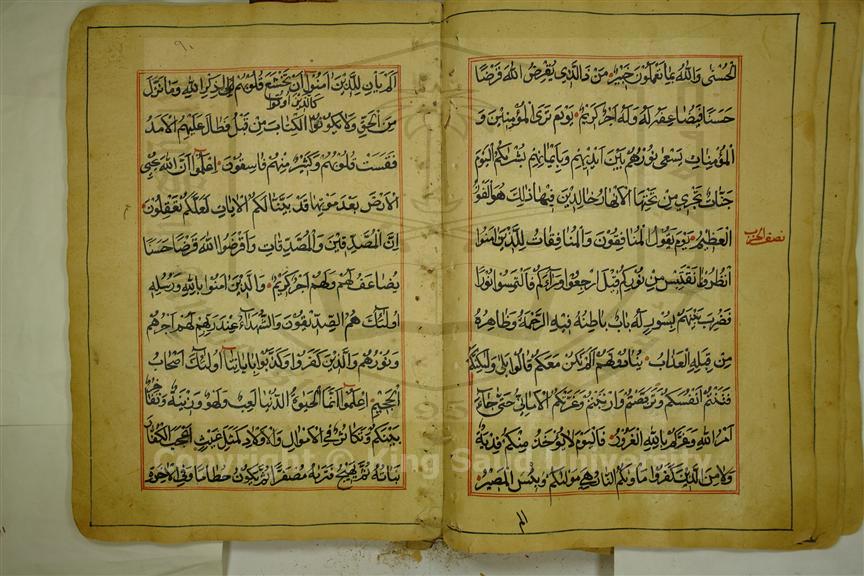 الحسنى والله بما تعملون خبير من ذالذي يقرض الله قرضا
حسنا فيضاعفه له وله اجر كريم يوم ترى المؤمنين و
المؤمنات يسعى نورهم بين ايديهم وبايمانهم بشراكم اليوم
جنات تجري من تحتها الانهار خالدين فيها ذالك هو الفوز
العظيم يوم يقول المنافقون والمنافقات للذين امنوا
نصف الحزب
انظرونا نقتبس من نوركم قيل ارجعوا وراءكم فالتمسوا نورا
فضرب بينهم بسور له باب باطنه فيه الرحمة وظاهره
من قبله العذاب ينادونهم الم نكن معكم قالوا بلى ولكنكم
فتنتم انفسكم وتربصتم وارتبتم وغرتكم الاماني حتى جاء
امر الله وغركم بالله الغرور فاليوم لا يؤخذ منكم فدية
ولا من الذين كفروا ماوىكم النار هي مولىكم وبئس المصير
الم
٩٠
الم يان للذين امنوا ان تخشع قلوبهم لذكر الله وما نزل
من الحق ولا يكونوا كالذين اوتوا الكتاب من قبل فطال عليهم الامد
فقست قلوبهم وكثير منهم فاسقون اعلموا ان الله يحيي
الارض بعد موتها قد بينا لكم الايات لعلكم تعقلون
ان المصدقين والمصدقات واقرضوا الله قرضا حسنا
يضاعف لهم ولهم اجر كريم والذين امنوا بالله ورسله
اولئك هم الصديقون والشهداء عند ربهم لهم اجرهم
ونورهم والذين كفروا وكذبوا باياتنا اولئك اصحاب
الجحيم اعلموا انما الحيوة الدنيا لعب ولهو وزينة وتفاخر
بينكم وتكاثر في الاموال والاولاد كمثل غيث اعجب الكفار
نباته ثم يهيج فتريه مصفرا ثم يكون حطاما وفي الاخرة
Copyright © King Saud University